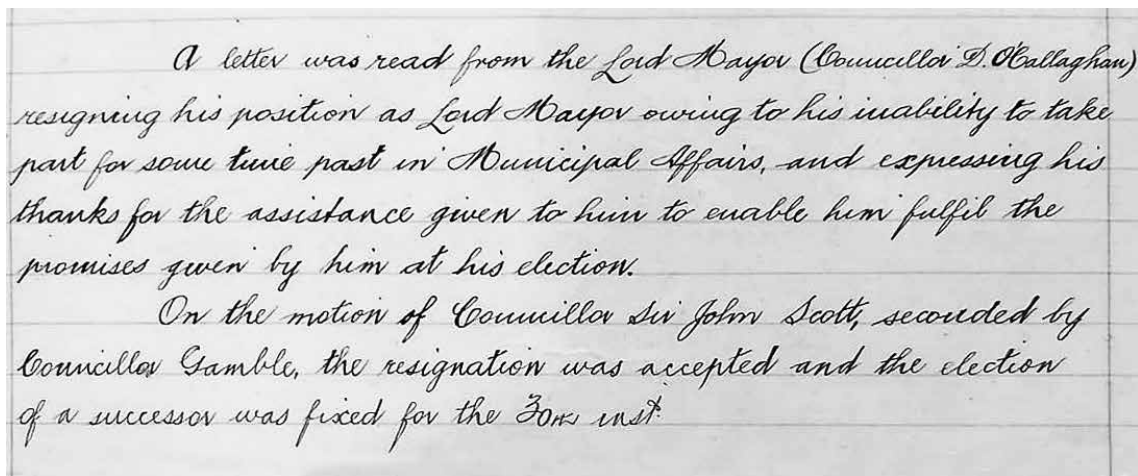 A letter was read from the Lord Mayor (Councillor D. O'Callaghan)
resigning his position as Lord Mayor owing to his inability to take
part for some time past in Municipal Affairs, and expressing his
thanks for the assistance given to him to enable him fulfil the
promises given by him at his election.
On the motion of Councillor Sir John Scott, seconded by
Councillor Gamble, the resignation was accepted and the election
of a successor was fixed for the 30th inst.